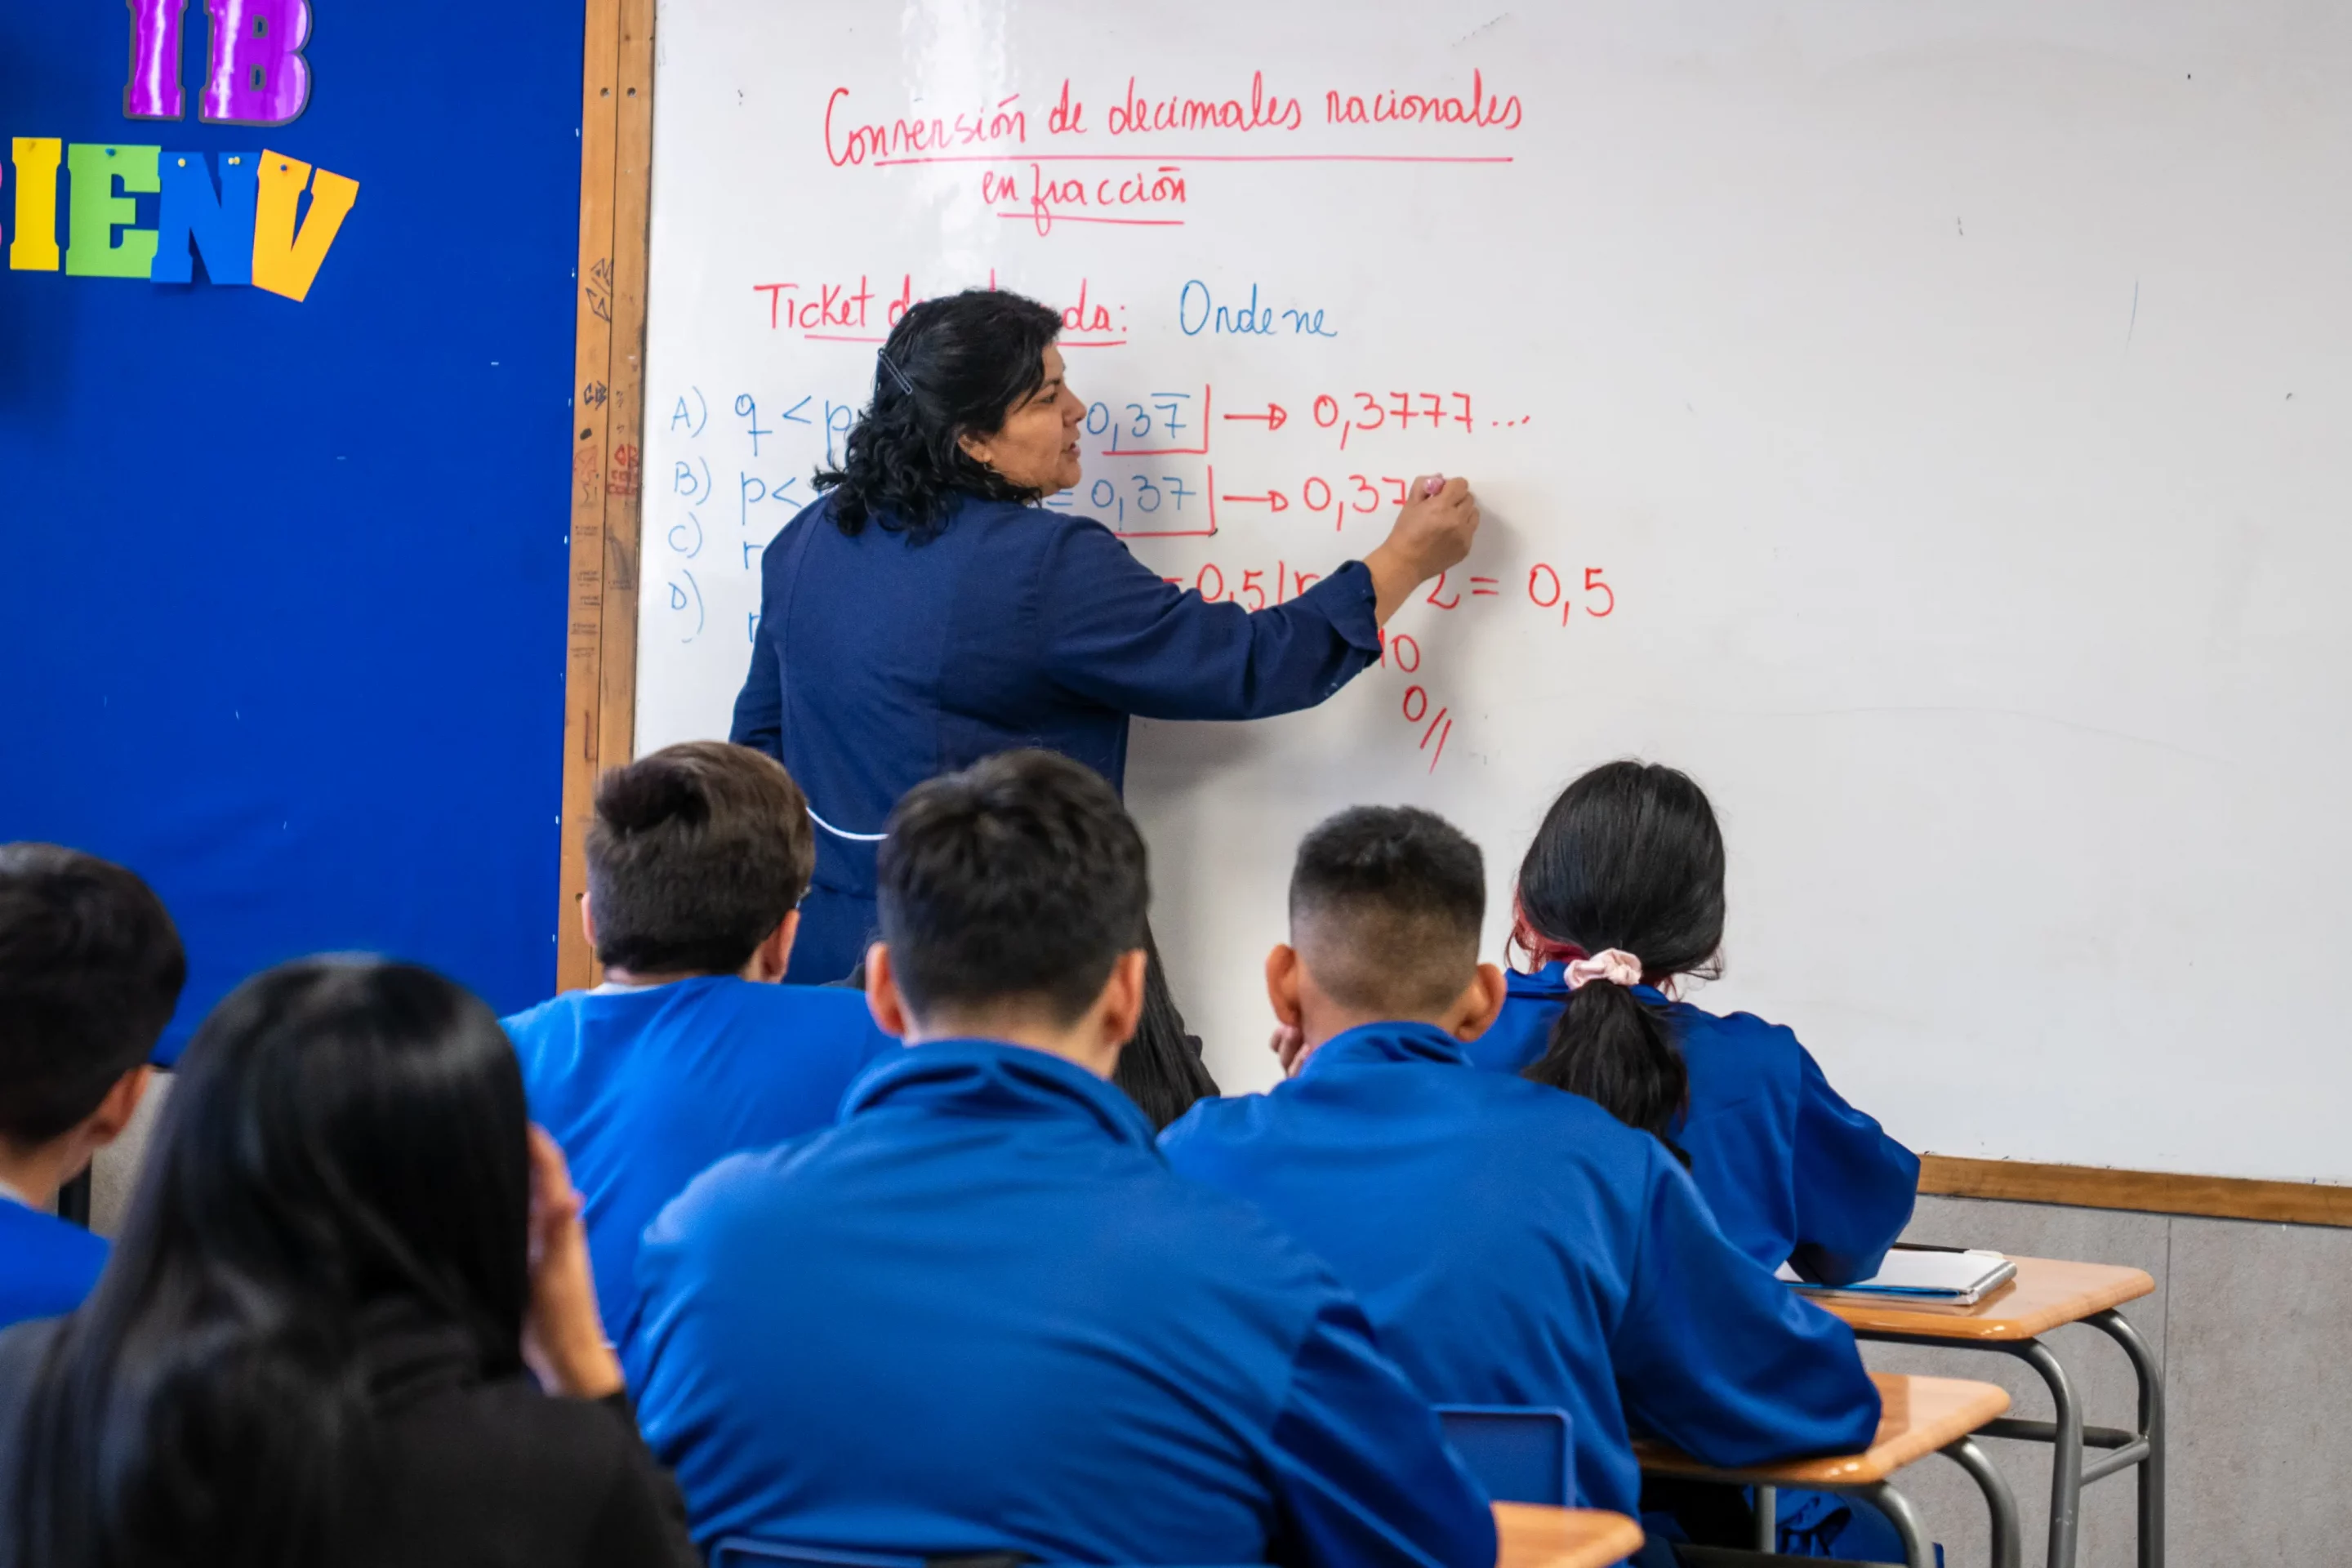 IB
IENV
Conversión de decimales racionales
en fracción
Ticket da: Ordene
A) q < p 0,37̅ → 0,3777...
B) p < = 0,37 → 0,37
C) r
=0,5 2 = 0,5
D) r
10
0//